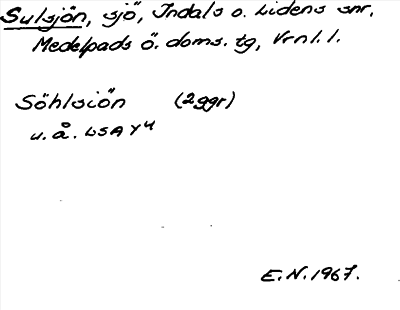 Sulsjön, sjö, Indals o. Lidens snr,
Medelpads ö. doms. tg, Vrnl. l.
Söhlsiön (2 ggr)
u. å. LSA Y4
E.N. 1967.